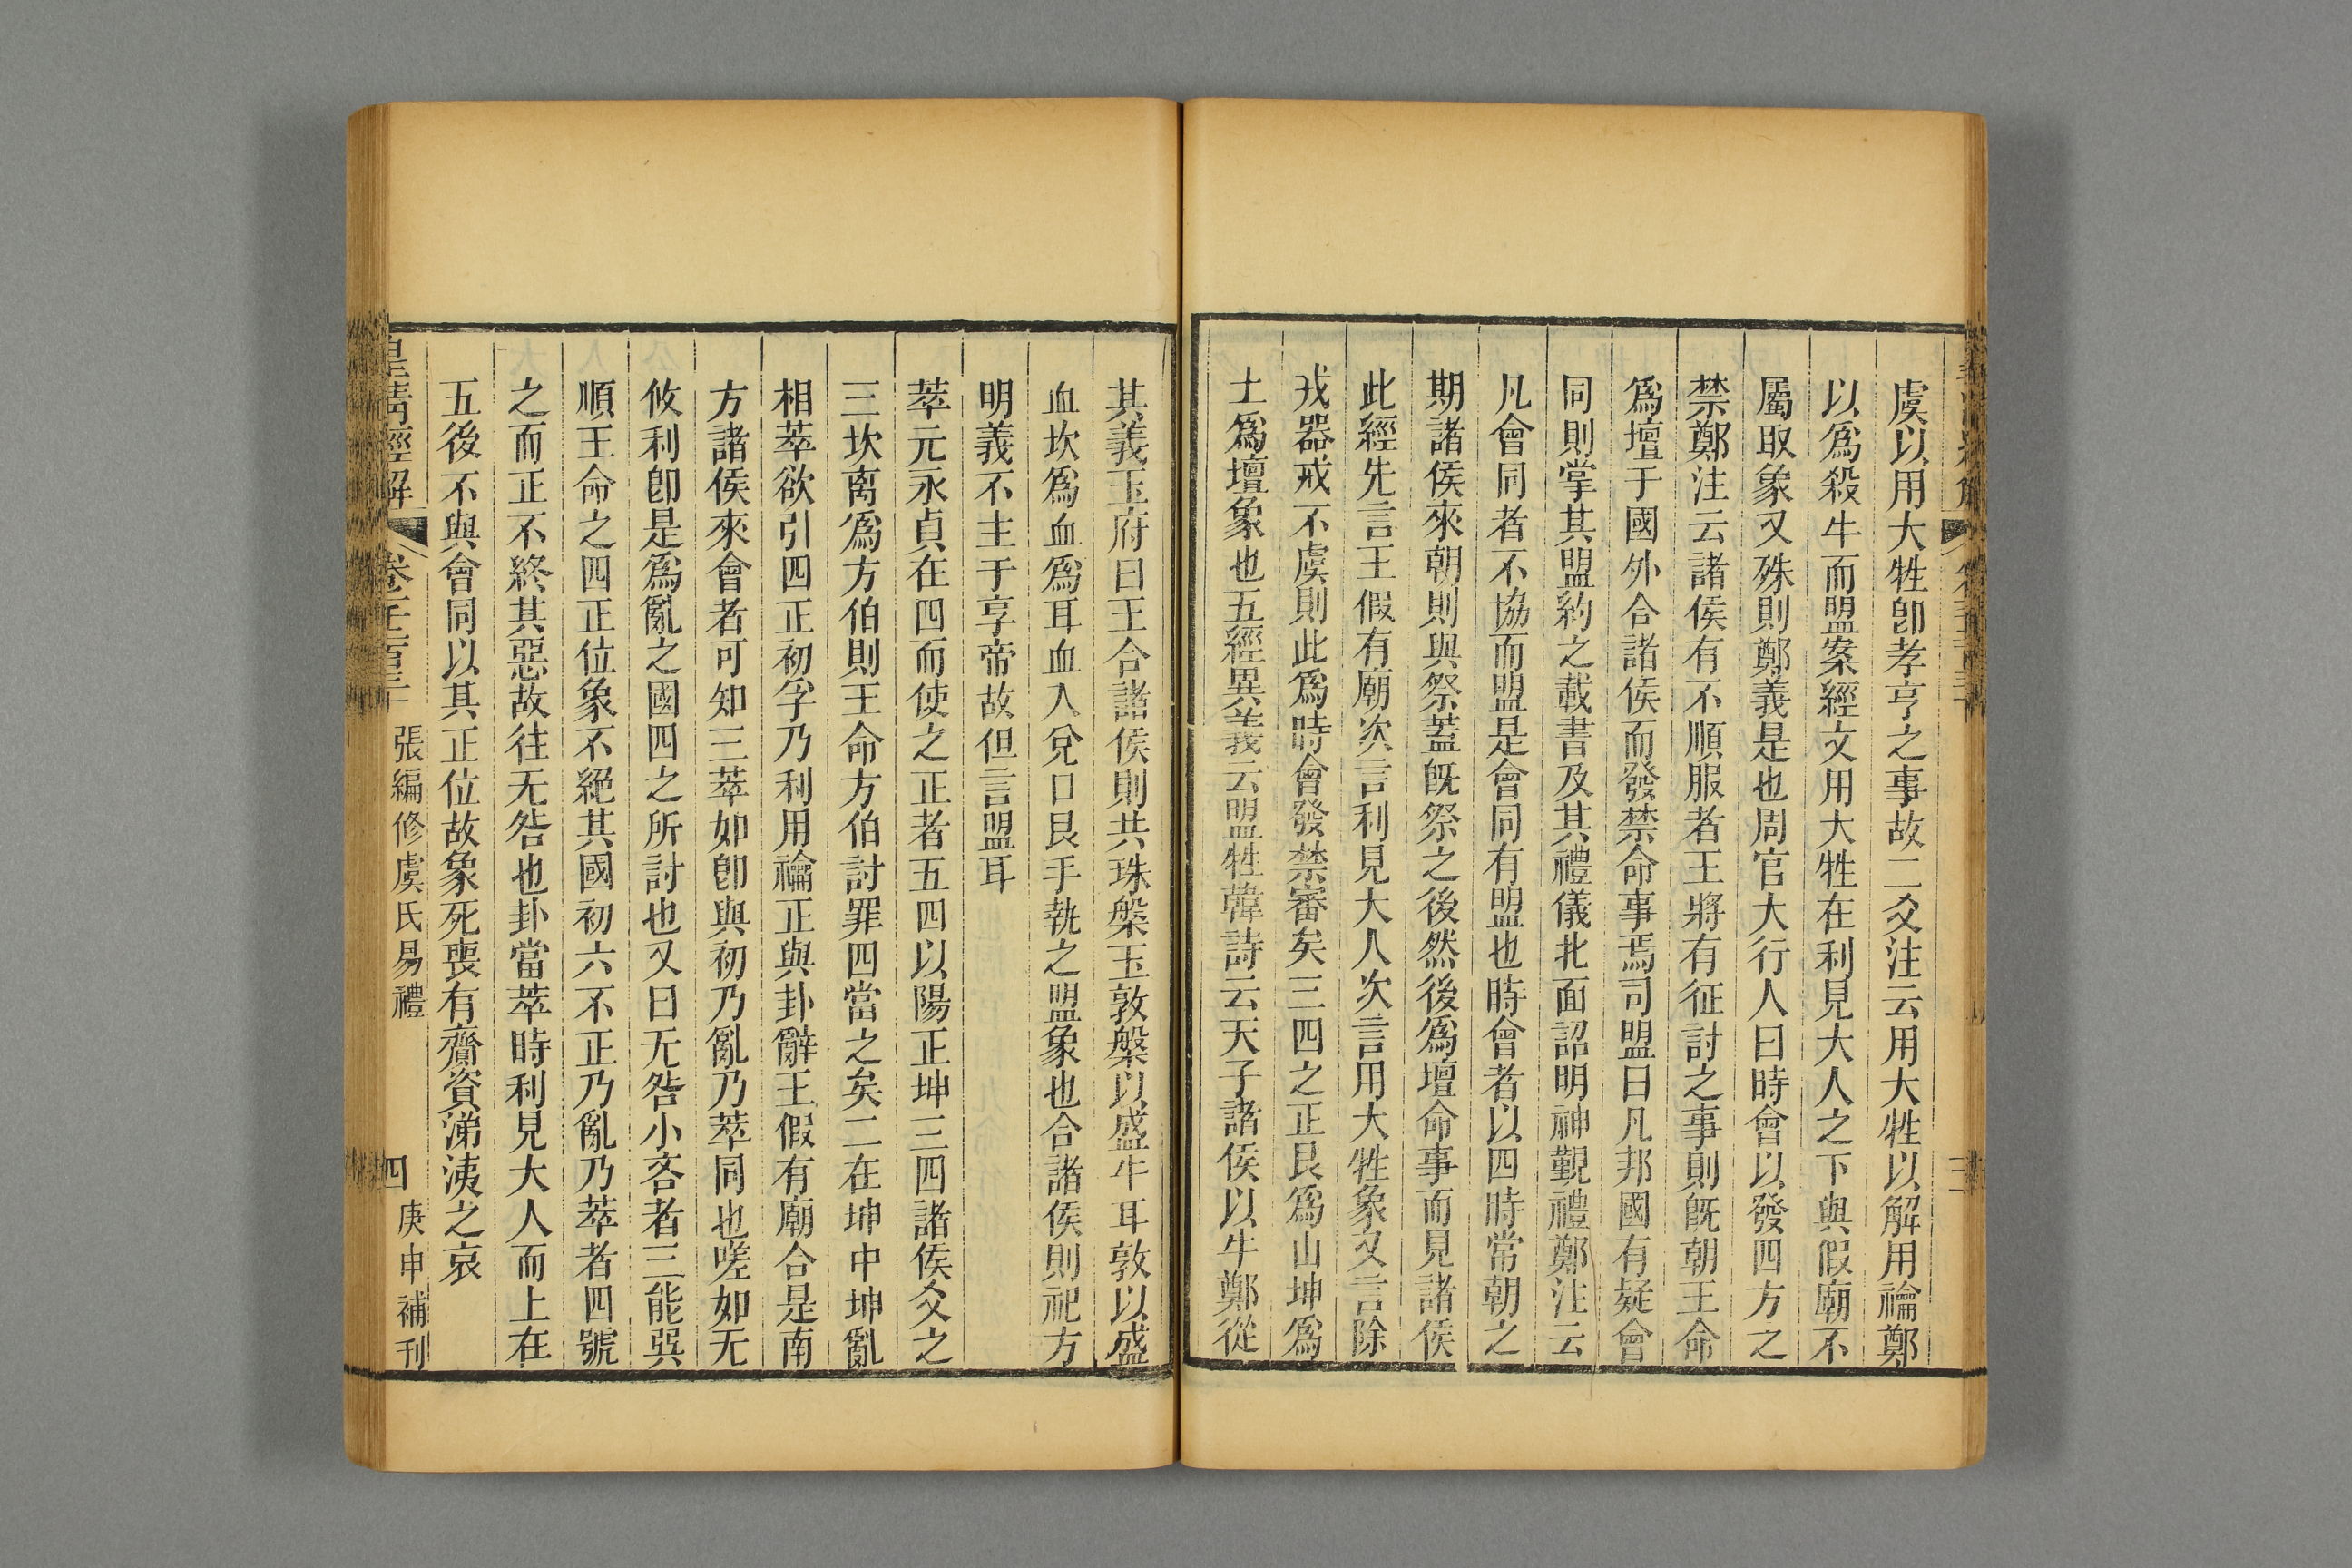 虞以用大牲卽孝亨之事故二爻注云用大牲以解用禴鄭
以爲殺牛而盟案經文用大牲在利見大人之下與假廟不
屬取象又殊則鄭義是也周官大行人曰時會以發四方之
禁鄭注云諸侯有不順服者王將有征討之事則旣朝王命
爲壇于國外合諸侯而發禁命事焉司盟曰凡邦國有疑會
同則掌其盟約之載書及其禮儀北面詔明神覲禮鄭注云
凡會同者不協而盟是會同有盟也時會者以四時常朝之
期諸侯來朝則與祭蓋旣祭之後然後爲壇命事而見諸侯
此經先言王假有廟次言利見大人次言用大牲象又言除
戎器戒不虞則此爲時會發禁審矣三四之正艮爲山坤爲
土爲壇象也五經異義云盟牲韓詩云天子諸侯以牛鄭從
其義玉府曰王合諸侯則共珠槃玉敦槃以盛牛耳敦以盛
血坎爲血爲耳血入兌口艮手執之盟象也合諸侯則祀方
明義不主于享帝故但言盟耳
萃元永貞在四而使之正者五四以陽正坤三四諸侯爻之
三坎离爲方伯則王命方伯討罪四當之矣二在坤中坤亂
相萃欲引四正初孚乃利用禴正與卦辭王假有廟合是南
方諸侯來會者可知三萃如卽與初乃亂乃萃同也嗟如无
攸利卽是爲亂之國四之所討也又曰无咎小吝者三能巽
順王命之四正位象不絕其國初六不正乃亂乃萃者四號
之而正不終其惡故往无咎也卦當萃時利見大人而上在
五後不與會同以其正位故象死喪有齎資涕洟之哀
皇清經解 卷 張編修虞氏易禮 四 庚申補刊